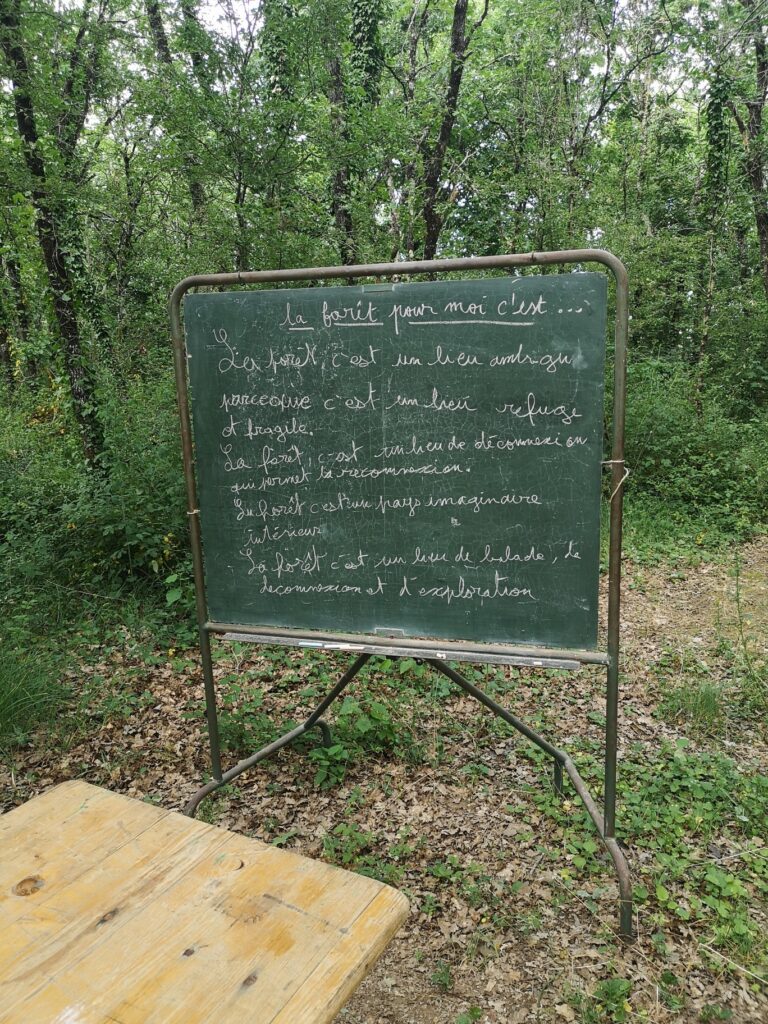 la forêt pour moi c'est ...
La forêt, c'est un lieu ambigu
parceque c'est un lieu refuge
et fragile.
La forêt, c'est un lieu de déconnexion
qui permet la reconnexion.
La forêt c'est un pays imaginaire
intérieur
La forêt c'est un lieu de balade, de
deconnexion et d'exploration